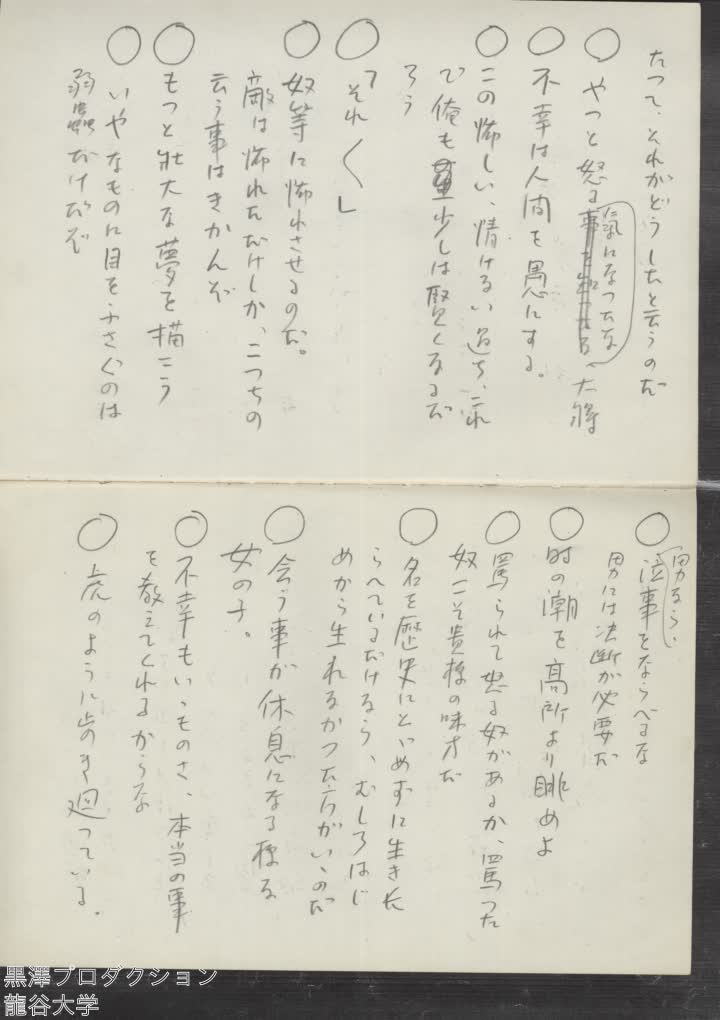 たつて、それがどうしたと云うのだ
○ やつと怒る氣になつたな、大将
○ 不幸は人間を愚にする。
○ この怖しい、情けない過ち、これ
で俺も少しは賢くなるだ
ろう
○ 「それ〱」
○ 奴等に怖れさせるのだ。
敵は怖れただけしか、こつちの
云う事はきかんぞ
○ もつと壯大な夢を描こう
○ いやなものに目をふさぐのは
弱蟲だけだぞ
○ 男らしい
泣事をならべるな
男には决断が必要だ
○ 時の潮を高所より眺めよ
○ 罵られて怒る奴があるか、罵つた
奴こそ貴様の味方だ
○ 名を歴史にとゞめずに生き永
らへているだけなら、むしろはじ
めから生れなかつた方がいゝのだ
○ 会う事が休息になる様な
女の子。
○ 不幸もいゝものさ、本当の事
を教えてくれるからな
○ 虎のように歩き廻つている。
黒澤プロダクション
龍谷大学